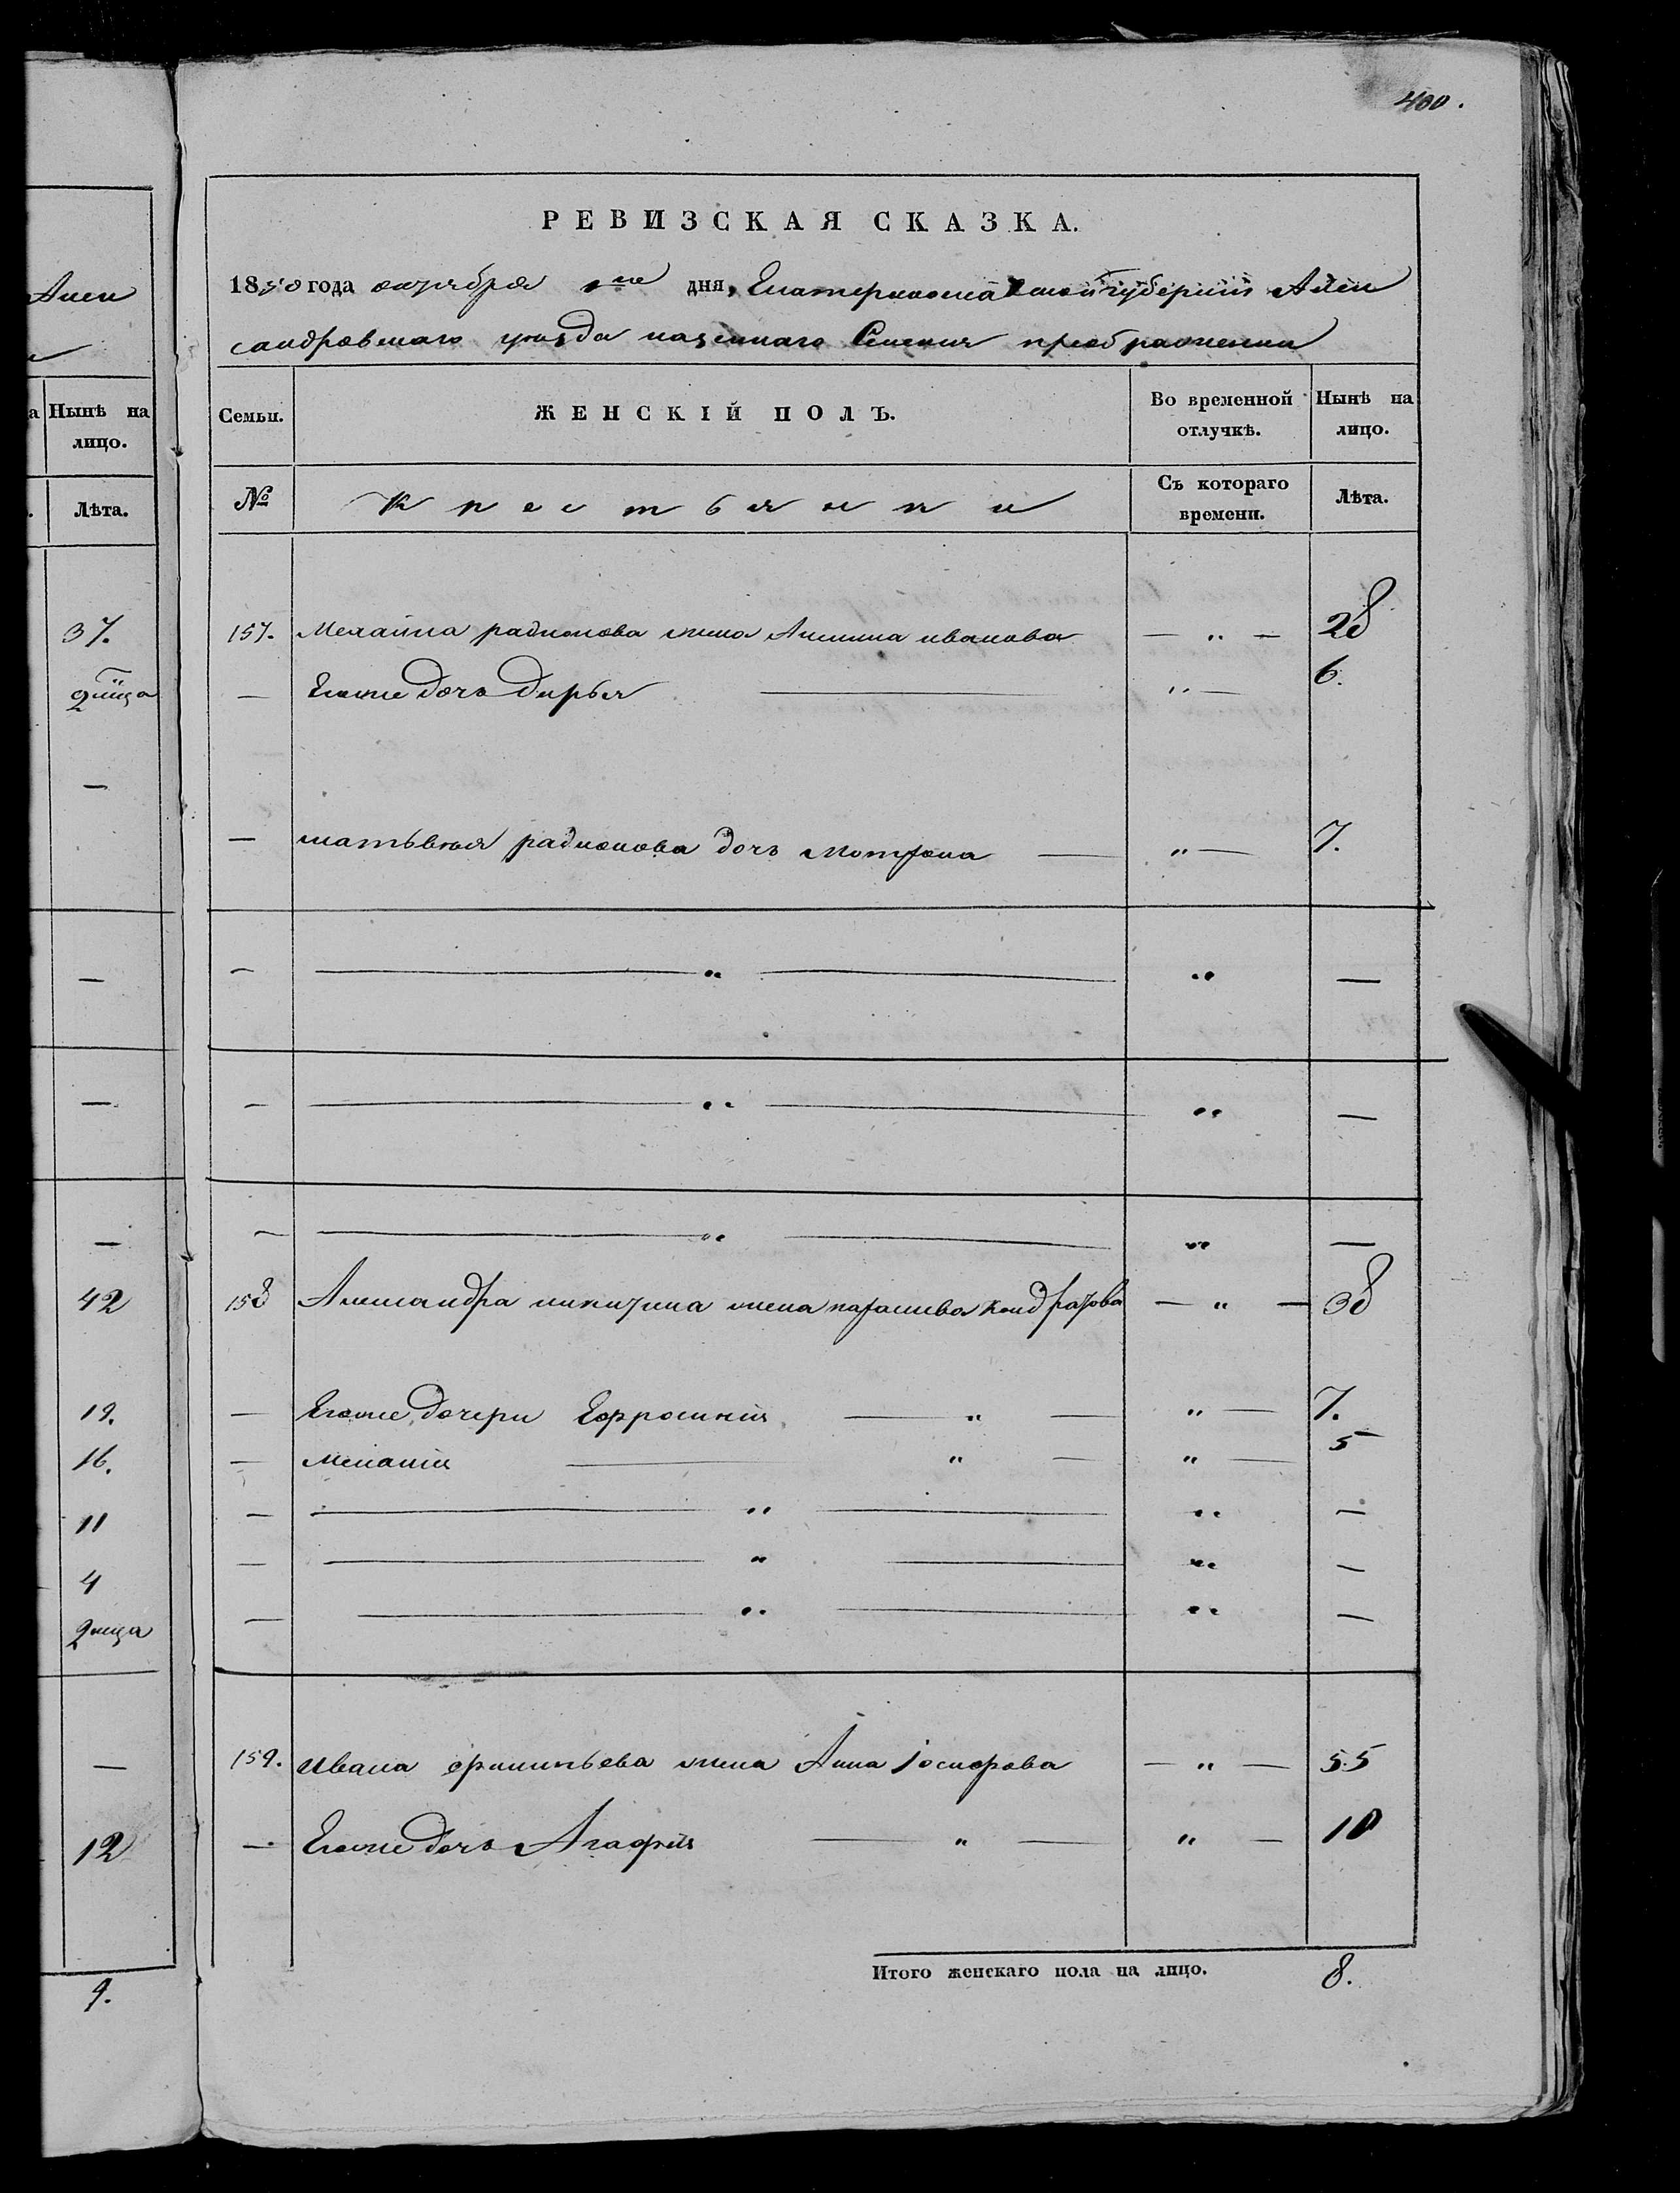 400.
Алек
а Нынѣ на
лицо.
Лѣта.
37.
2 мца
—
—
—
—
42
19.
16.
11
4
2 мца
—
12
9.
РЕВИЗСКАЯ СКАЗКА.
1850 года октября 1го дня, Екатеринославской губернии Алек
сандровского уезда казенного Селения преображенки
Семьи. ЖЕНСКІЙ ПОЛЪ. Во временной отлучкѣ. Нынѣ на лицо.
№ Крестьянки Съ котораго времени. Лѣта.
157. Михайла радионова жена Акилина иванова — „ — 28
— Егоже дочь дарья — „ — 6.
— матьвѣя радионова дочь мотрона — „ — 7.
— — „ — „ —
— — „ — „ —
— — „ — „ —
158 Александра никитина жена параскева кондратова — „ — 38
— Егоже дочери Ефросинія — „ — „ — 7.
— меланія — „ — „ — 5
— — „ — „ —
— — „ — „ —
— — „ — „ —
159. Ивана филипьева жена Анна Іосифова — „ — 55
— Егоже дочь Агафія — „ — „ — 10
Итого женскаго пола на лицо. 8.